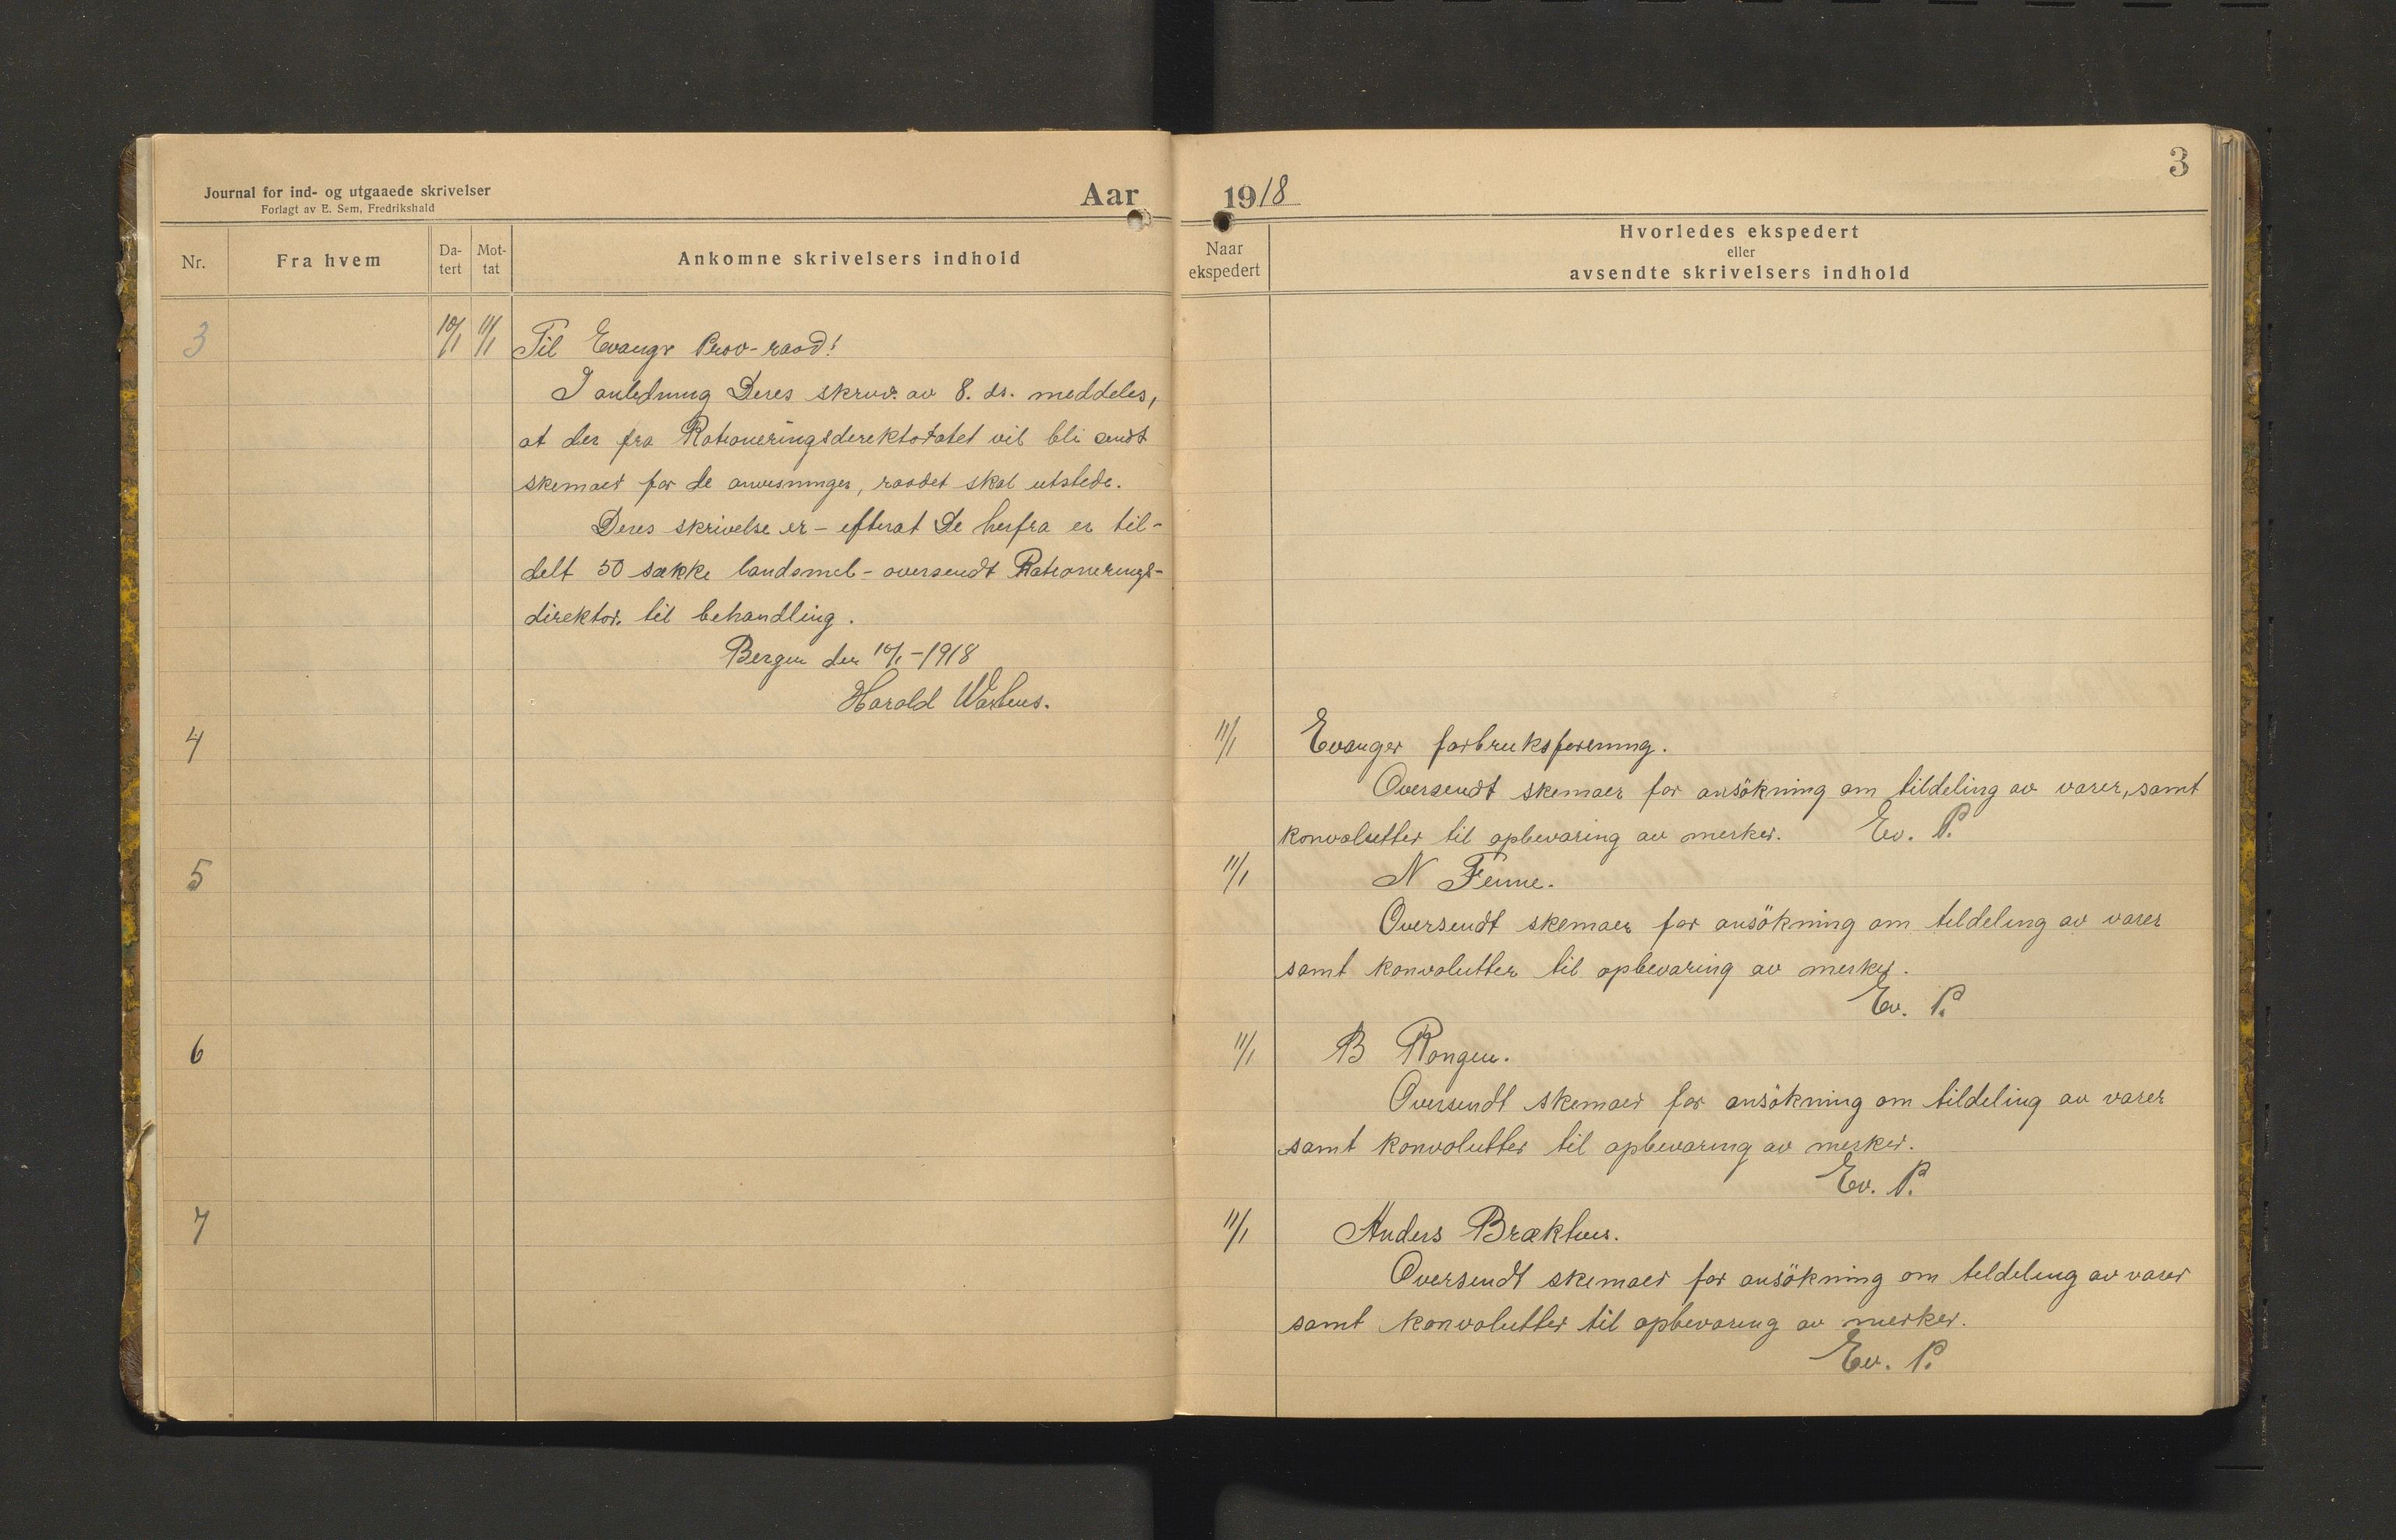 Journal for ind- og utgaaede skrivelser
Forlagt av E. Sem, Fredrikshald
Aar
1918
3
Nr.
Fra hvem
Da-
tert
Mot-
tat
Ankomne skrivelsers indhold
Naar
ekspedert
Hvorledes ekspedert
eller
avsendte skrivelsers indhold
3 10/1 11/1 Til Evangr Prov-raad!
I anledning Deres skriv. av 8. ds. meddeles,
at der fra Rationeringsdirektoratet vil bli sendt
skemaer for de anvisninger, raadet skal utstede.
Deres skrivelse er - efterat De herfra er til-
delt 50 sække landsmel - oversendt Rationerings-
direktor. til behandling.
Bergen den 10/1-1918
Harald
4 11/1 Evanger forbruksforening.
Oversendt skemaer for ansökning om tildeling av varer, samt
konvolutter til opbevaring av merker. Ev. P.
5 11/1 N Fenne.
Oversendt skemaer for ansökning om tildeling av varer
samt konvolutter til opbevaring av merker.
Ev. P.
6 11/1 B Rongen.
Oversendt skemaer for ansökning om tildeling av varer
samt konvolutter til opbevaring av merker.
Ev. P.
7 11/1 Anders Brækhus.
Oversendt skemaer for ansökning om tildeling av varer
samt konvolutter til opbevaring av merker.
Ev. P.